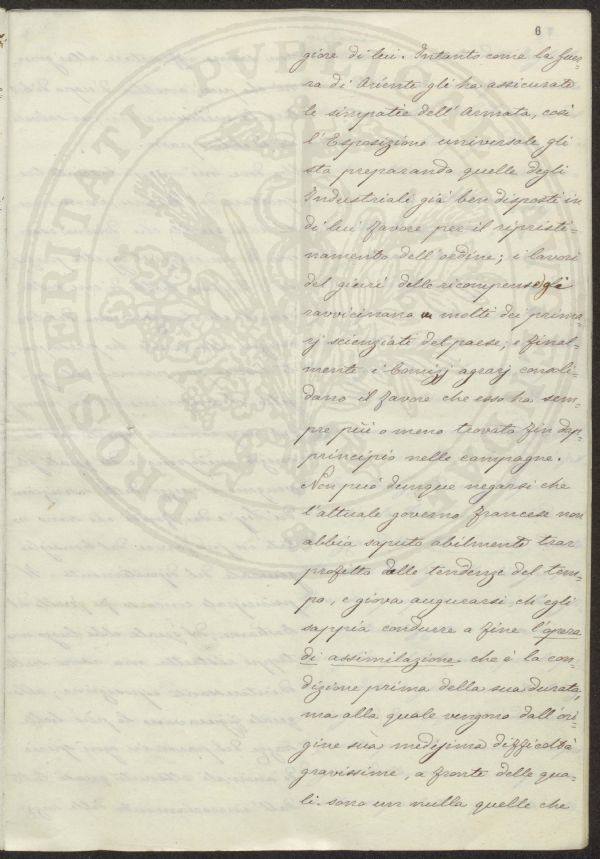 6
giore di lui. Intanto come la guer-
ra di Oriente gli ha assicurato
le simpatie dell'Armata, così
l'Esposizione universale gli
sta preparando quelle degli
Industriali già ben disposti in
di lui favore per il ripristi-
namento dell'ordine; i lavori
del giurì delle ricompense gli
ravvicinano molti dei prima-
rj scienziati del paese; e final-
mente, i Comizj agrarj consoli-
dano il favore che esso ha sem-
pre più o meno trovato fin dap-
principio nelle campagne.
Non può dunque negarsi che
l'attuale governo francese non
abbia saputo abilmente trar
profitto delle tendenze del tem-
po, e giova augurarsi ch'egli
sappia condurre a fine l'opera
di assimilazione che è la con-
dizione prima della sua durata,
ma alla quale vengono dall'ori-
gine sua medesima difficoltà
gravissime, a fronte delle qua-
li sono un nulla quelle che
PROSPERITATI PVBLICAE